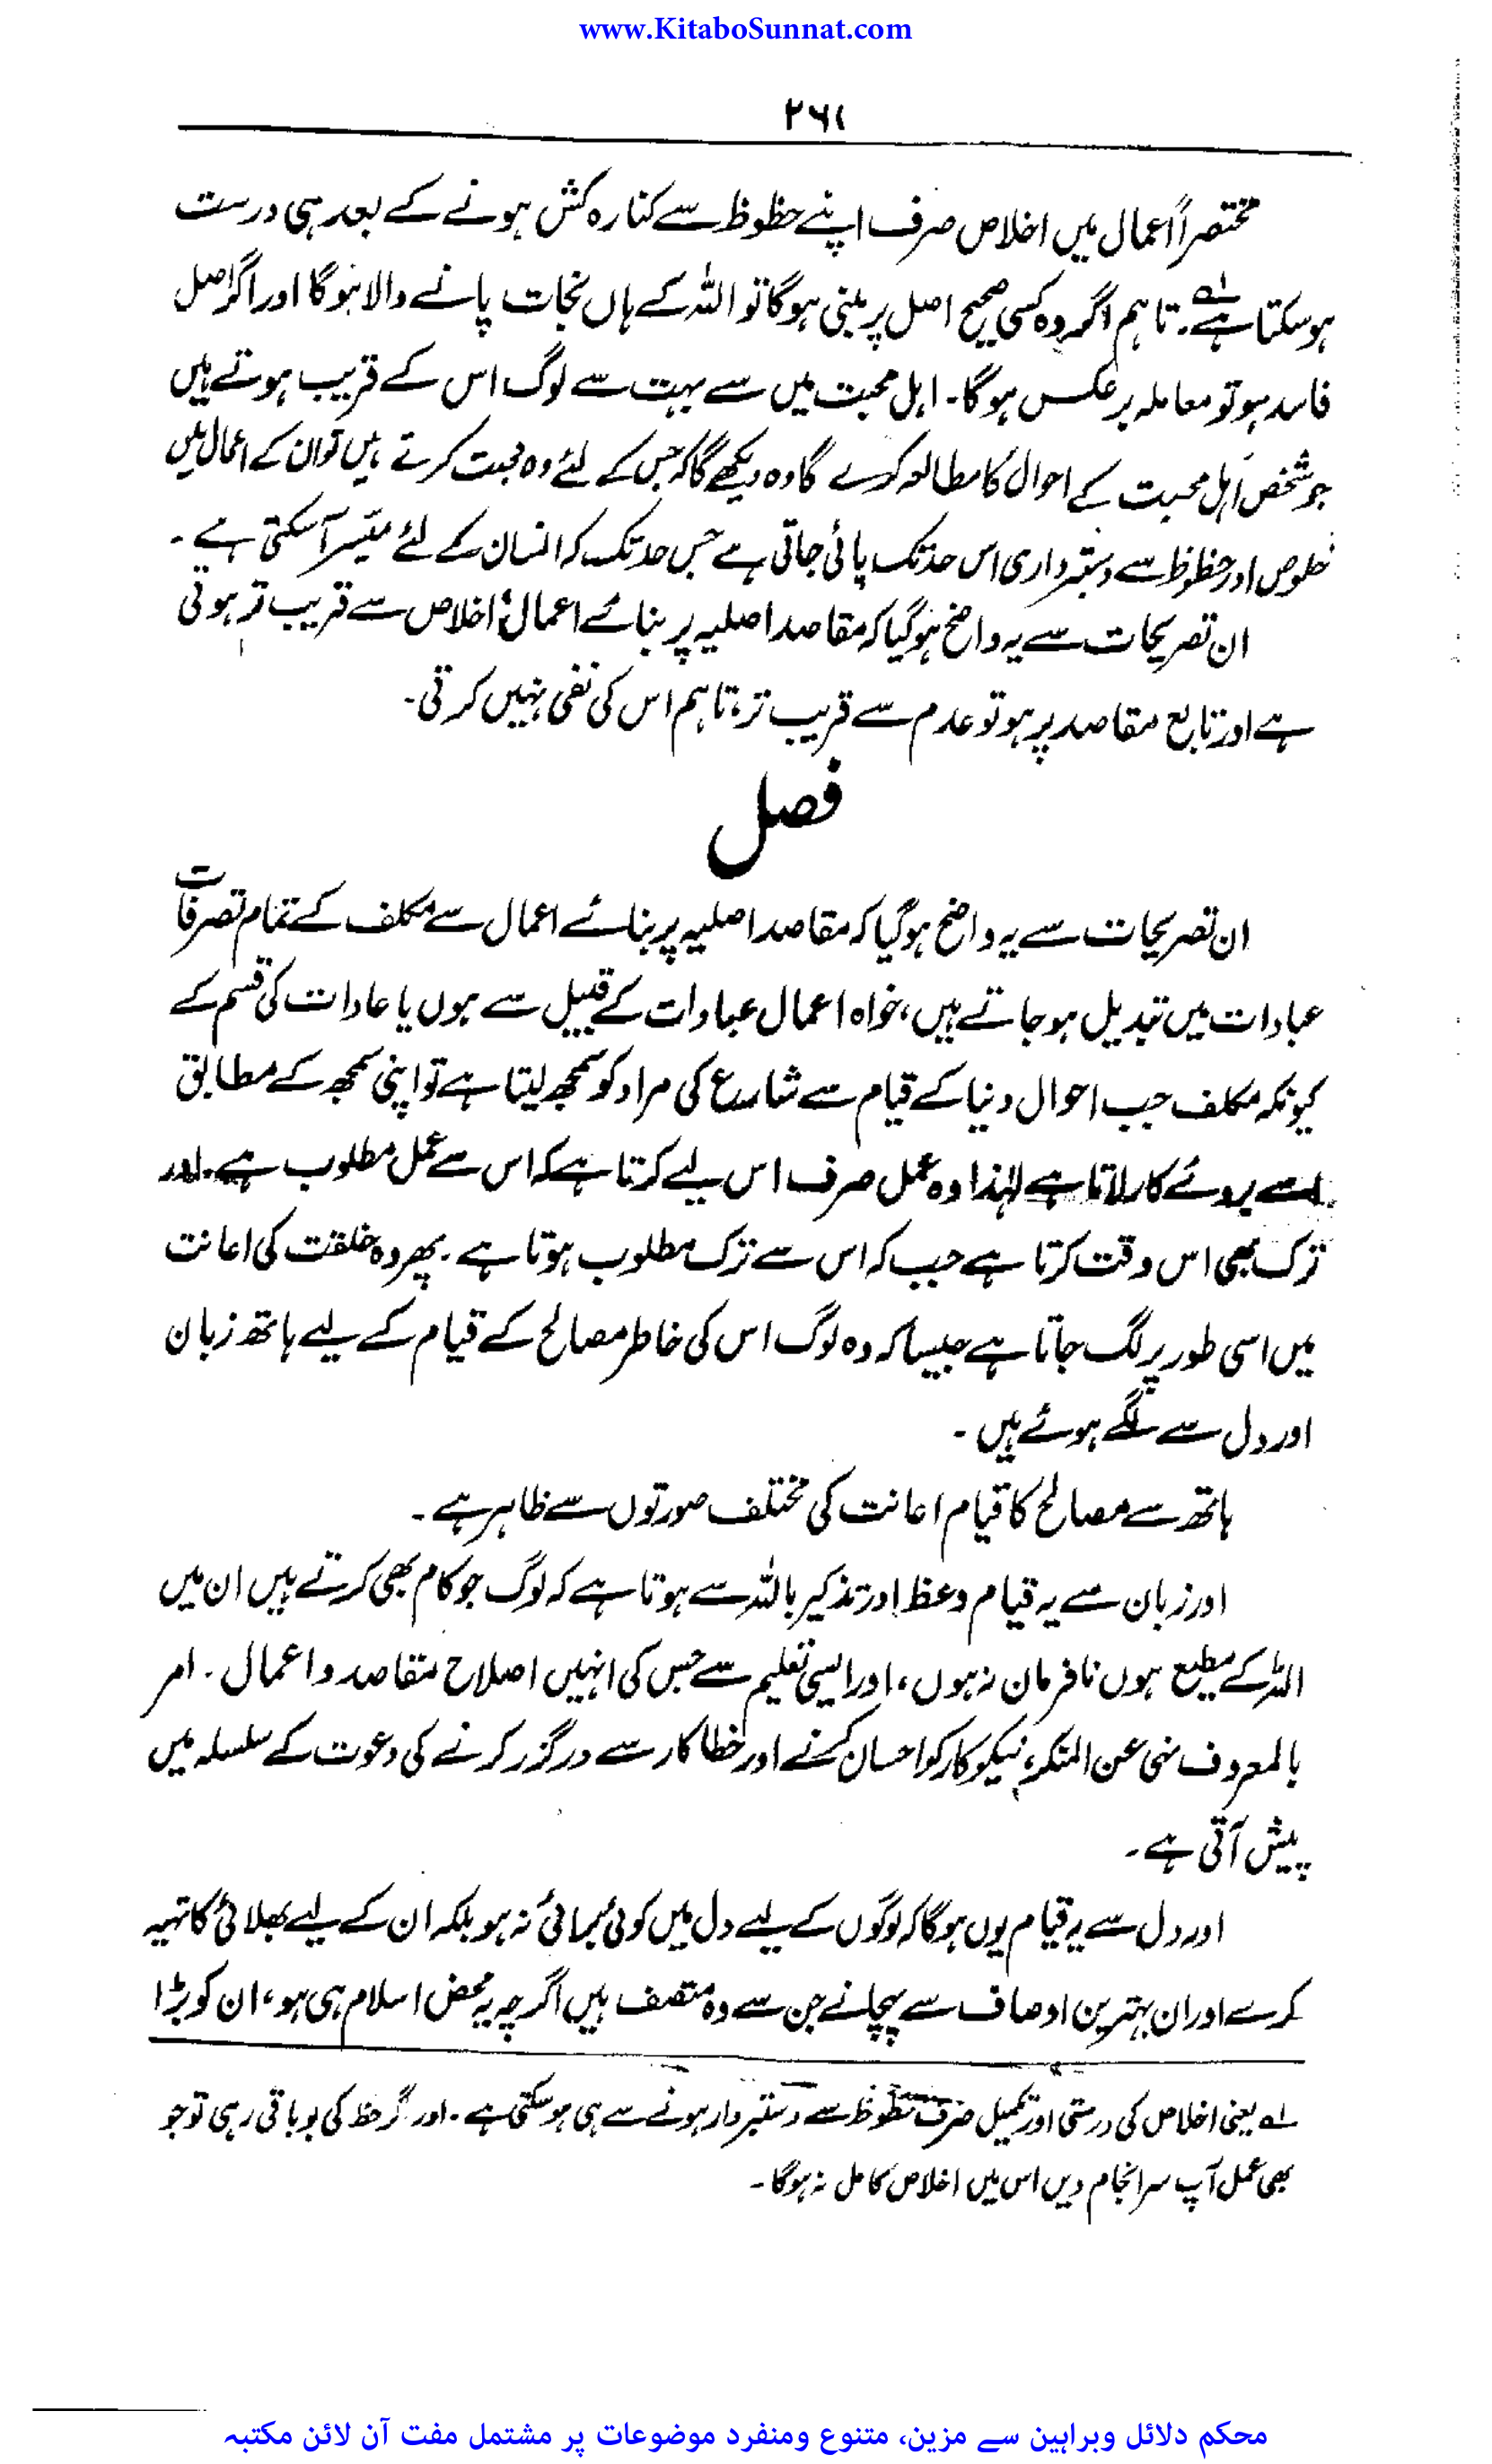 www.KitaboSunnat.com
۲۶۱
مختصراً اعمال میں اخلاص صرف اپنے حظوظ سے کنارہ کش ہونے کے بعد ہی درست
ہو سکتا ہے۔ لہ تاہم اگر وہ کسی صحیح اصل پر مبنی ہوگا تو اللہ کے ہاں نجات پانے والا ہوگا اور اگر اصل
فاسد ہو تو معاملہ برعکس ہوگا۔ اہل محبت میں سے بہت سے لوگ اس کے قریب ہوتے ہیں
جو شخص اہل محبت کے احوال کا مطالعہ کرے گا وہ دیکھے گا کہ جس کے لئے وہ محبت کرتے ہیں تو ان کے اعمال میں
خلوص اور حظوظ سے دستبرداری اس حد تک پائی جاتی ہے جس حد تک کہ انسان کے لئے میسّر آ سکتی ہے۔
ان تصریحات سے یہ واضح ہوگیا کہ مقاصد اصلیہ پر بنائے اعمال، اخلاص سے قریب تر ہوتی
ہے اور تابع مقاصد پر ہو تو عدم سے قریب تر، تاہم اس کی نفی نہیں کرتی۔
فصل
ان تصریحات سے یہ واضح ہوگیا کہ مقاصد اصلیہ پر بنائے اعمال سے مکلف کے تمام تصرفات
عبادات میں تبدیل ہو جاتے ہیں، خواہ اعمال عبادات کے قبیل سے ہوں یا عادات کی قسم کے
کیونکہ مکلف جب احوال دنیا کے قیام سے شارع کی مراد کو سمجھ لیتا ہے تو اپنی سمجھ کے مطابق
اسے بروئے کار لاتا ہے لہٰذا وہ عمل صرف اس لیے کرتا ہے کہ اس سے عمل مطلوب ہے۔ اور
ترک بھی اس وقت کرتا ہے جب کہ اس سے ترک مطلوب ہوتا ہے۔ پھر وہ خلقت کی اعانت
میں اسی طور پر لگ جاتا ہے جیسا کہ وہ لوگ اس کی خاطر مصالح کے قیام کے لیے ہاتھ زبان
اور دل سے لگے ہوئے ہیں۔
ہاتھ سے مصالح کا قیام اعانت کی مختلف صورتوں سے ظاہر ہے۔
اور زبان سے یہ قیام وعظ اور تذکیر باللہ سے ہوتا ہے کہ لوگ جو کام بھی کرتے ہیں ان میں
اللہ کے مطیع ہوں نافرمان نہ ہوں، اور ایسی تعلیم سے جس کی انہیں اصلاح مقاصد و اعمال۔ امر
بالمعروف نہی عن المنکر، نیکو کار کو احسان کرنے اور خطا کار سے درگزر کرنے کی دعوت کے سلسلہ میں
پیش آتی ہے۔
اور دل سے یہ قیام یوں ہوگا کہ لوگوں کے لیے دل میں کوئی برائی نہ ہو بلکہ ان کے لیے بھلائی کا تہیہ
کرے اور ان بہترین اوصاف سے پہچانے جن سے وہ متصف ہیں اگرچہ یہ محض اسلام ہی ہو، ان کو بڑا
لہ یعنی اخلاص کی درستی اور تکمیل صرف حظوظ سے دستبردار ہونے سے ہی ہو سکتی ہے۔ اور اگر حظ کی بو باقی رہی تو جو
بھی عمل آپ سرانجام دیں اس میں اخلاص کامل نہ ہوگا۔
محکم دلائل وبراہین سے مزین، متنوع ومنفرد موضوعات پر مشتمل مفت آن لائن مکتبہ